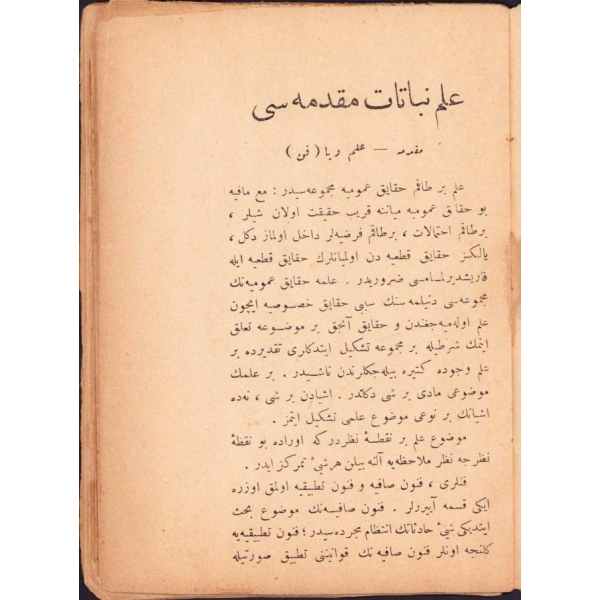 علم نباتات مقدمه‌سی
مقدمه — علم ویا ( فن )
علم بر طاقم حقایق عمومیه مجموعه‌سیدر : مع مافیه
بو حقائق عمومیه میاننه قریب حقیقت اولان شیلر ،
برطاقم احتمالات ، برطاقم فرضیه‌لر داخل اولماز دكل ،
یالكنز حقایق قطعیه دن اولمیانلرك حقایق قطعیه ایله
قاریشدیرلمامسی ضروریدر . علمه حقایق عمومیه‌نك
مجموعه‌سی دنیلمه سنك سببی حقایق خصوصیه ایچون
علم اوله‌میه‌جغندن و حقایق آنجق بر موضوعه تعلق
ایتمك شرطیله بر مجموعه تشكیل ایتدكلری تقدیرده بر
علم وجوده كتیره بیله‌جكلرندن ناشیدر . بر علمك
موضوعی مادی بر شی دكلدر . اشیادن بر شی ، نه‌ده
اشیانك بر نوعی موضوع علمی تشكیل ایتمز .
موضوع علم بر نقطۀ نظردر كه اوراده بو نقطۀ
نظرجه نظر ملاحظه‌یه آلنه بیلن هرشیئ تمركز ایدر .
فنلری ، فنون صافیه و فنون تطبیقیه اولمق اوزره
ایكی قسمه آییررلر . فنون صافیه‌نك موضوع بحث
ایتدیكی شیئ حادثاتك انتظام مجرده‌سیدر ؛ فنون تطبیقیه‌یه
كلنجه اونلر فنون صافیه نك قوانیننی تطبیق صورتیله